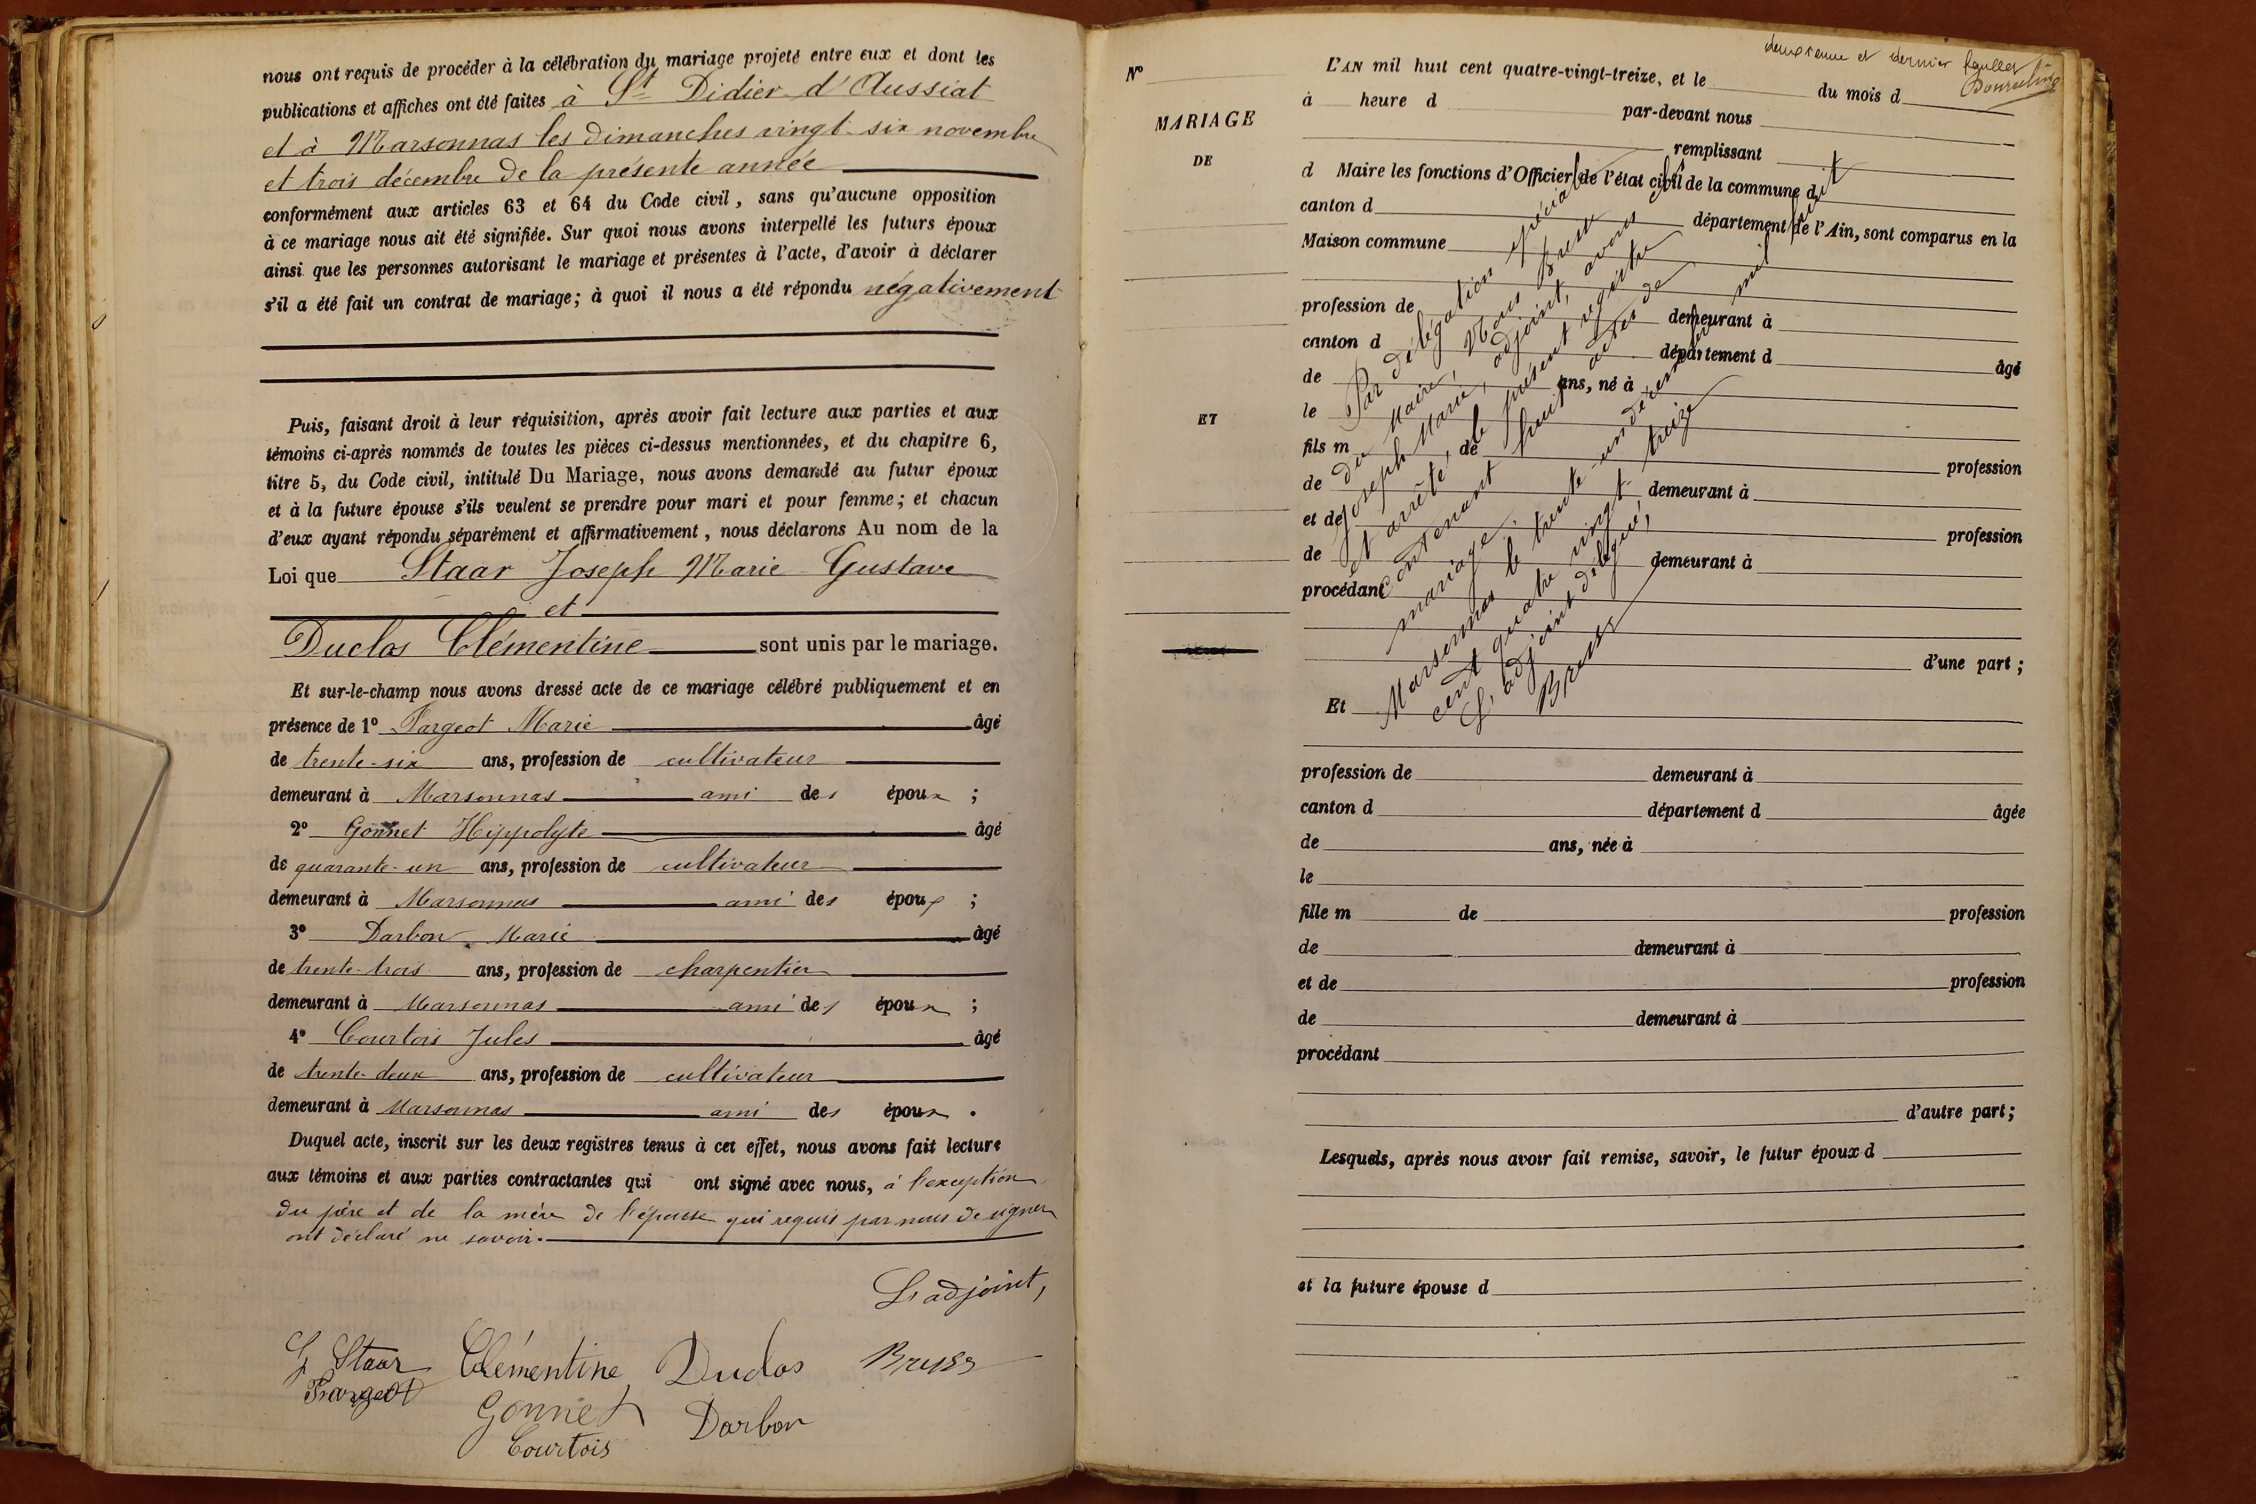 nous ont requis de procéder à la célébration du mariage projeté entre eux et dont les
publications et affiches ont été faites à St Didier d'Aussiat
et à Marsonnas les dimanches vingt-six novembre
et trois décembre de la présente année
conformément aux articles 63 et 64 du Code civil, sans qu'aucune opposition
à ce mariage nous ait été signifiée. Sur quoi nous avons interpellé les futurs époux
ainsi que les personnes autorisant le mariage et présentes à l'acte, d'avoir à déclarer
s'il a été fait un contrat de mariage; à quoi il nous a été répondu négativement
Puis, faisant droit à leur réquisition, après avoir fait lecture aux parties et aux
témoins ci-après nommés de toutes les pièces ci-dessus mentionnées, et du chapitre 6,
titre 5, du Code civil, intitulé Du Mariage, nous avons demandé au futur époux
et à la future épouse s'ils veulent se prendre pour mari et pour femme; et chacun
d'eux ayant répondu séparément et affirmativement, nous déclarons Au nom de la
Loi que Staar Joseph Marie Gustave
et
Duclos Clémentine sont unis par le mariage.
Et sur-le-champ nous avons dressé acte de ce mariage célébré publiquement et en
présence de 1° Fargeot Marie âgé
de trente-six ans, profession de cultivateur
demeurant à Marsonnas ami des époux ;
2° Gonnet Hippolyte âgé
de quarante-un ans, profession de cultivateur
demeurant à Marsonnas ami des époux ;
3° Darbon Marie âgé
de trente-trois ans, profession de charpentier
demeurant à Marsonnas ami des époux ;
4° Courtois Jules âgé
de trente-deux ans, profession de cultivateur
demeurant à Marsonnas ami des époux .
Duquel acte, inscrit sur les deux registres tenus à cet effet, nous avons fait lecture
aux témoins et aux parties contractantes qui ont signé avec nous, à l'exception
du père et de la mère de l'épouse qui requis par nous de signer
ont déclaré ne savoir.
L'adjoint,
G Staar Clémentine Duclos Bruss
Fargeot Gonnet Darbon
Courtois
deuxième et dernier feuillet
N°
MARIAGE
DE
ET
L'AN mil huit cent quatre-vingt-treize, et le du mois d
à heure d par-devant nous
remplissant
d Maire les fonctions d'Officier de l'état civil de la commune d
canton d département de l'Ain, sont comparus en la
Maison commune
profession de demeurant à
canton d département d âgé
de ans, né à
le
fils m de profession
de demeurant à
et de profession
de demeurant à
procédant
d'une part ;
Par délégation spéciale
du Maire, Nous Bruss
Joseph Marie, adjoint, avons clos
et arrêté le présent registre
contenant huit actes de
mariage.
Marsonnas le trente-un décembre mil huit
cent quatre vingt treize
L'adjoint délégué,
Bruss
Et
profession de demeurant à
canton d département d âgée
de ans, née à
le
fille m de profession
de demeurant à
et de profession
de demeurant à
procédant
d'autre part ;
Lesquels, après nous avoir fait remise, savoir, le futur époux d
et la future épouse d